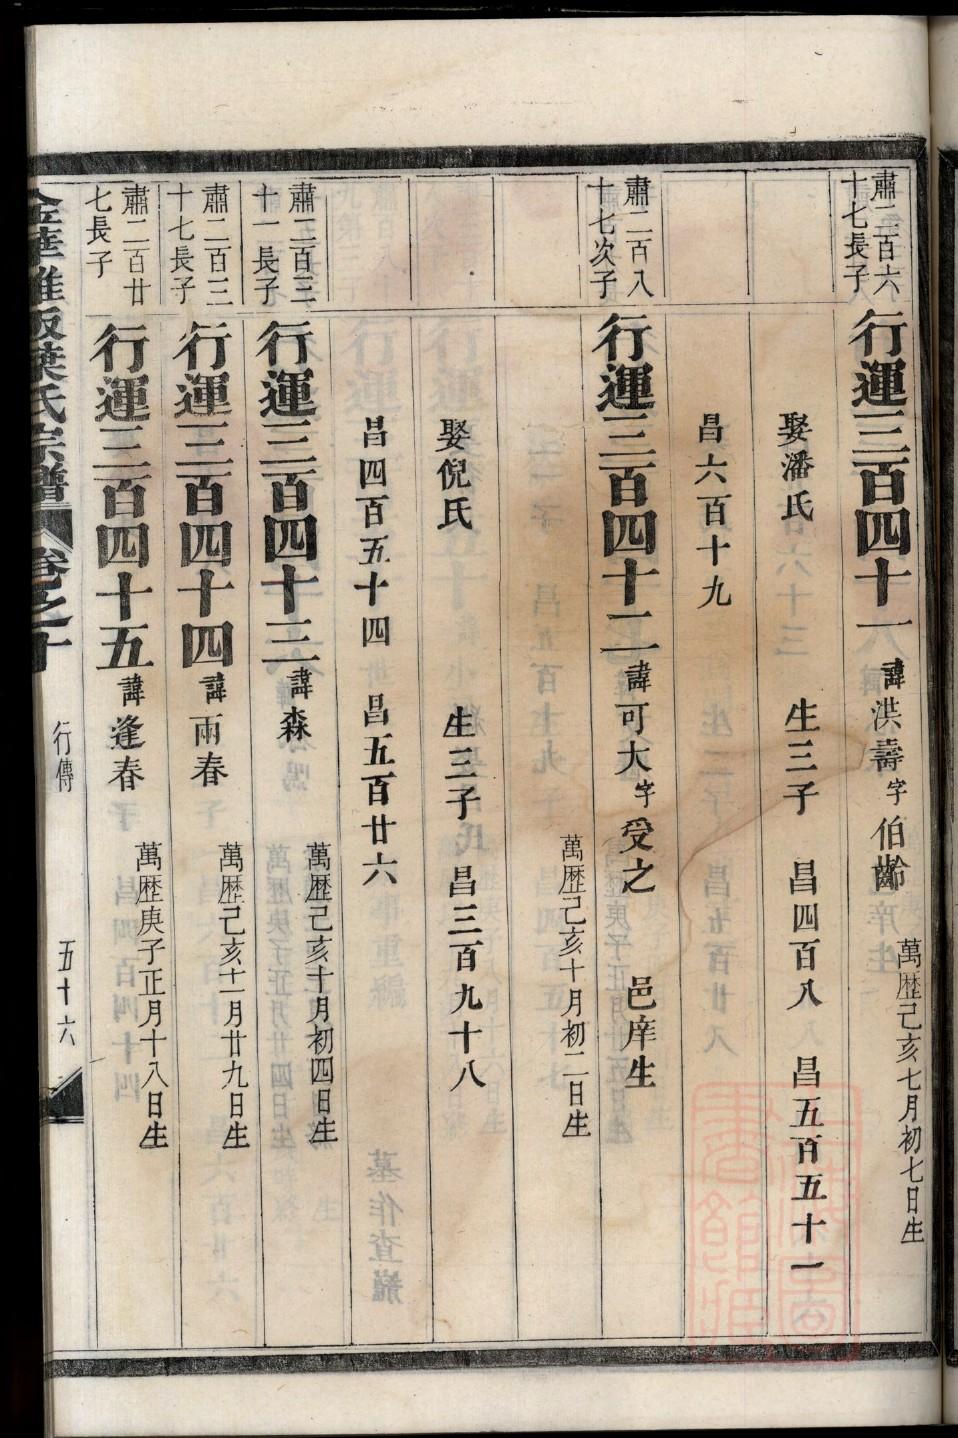 肅二百六
十七長子
行運三百四十一 諱洪壽 字伯齡 萬歷己亥七月初七日生
娶潘氏 生三子 昌四百八 昌五百五十一
昌六百十九
肅二百八
十七次子
行運三百四十二 諱可大 字受之 邑庠生
萬歷己亥十月初二日生
娶倪氏 生三子 昌三百九十八
昌四百五十四 昌五百廿六
肅二百三
十一長子
行運三百四十三 諱森 萬歷己亥十月初四日生
肅二百三
十七長子
行運三百四十四 諱雨春 萬歷己亥十一月廿九日生
肅二百廿
七長子
行運三百四十五 諱逢春 萬歷庚子正月十八日生
葉氏宗譜 卷之十 行傳 五十六